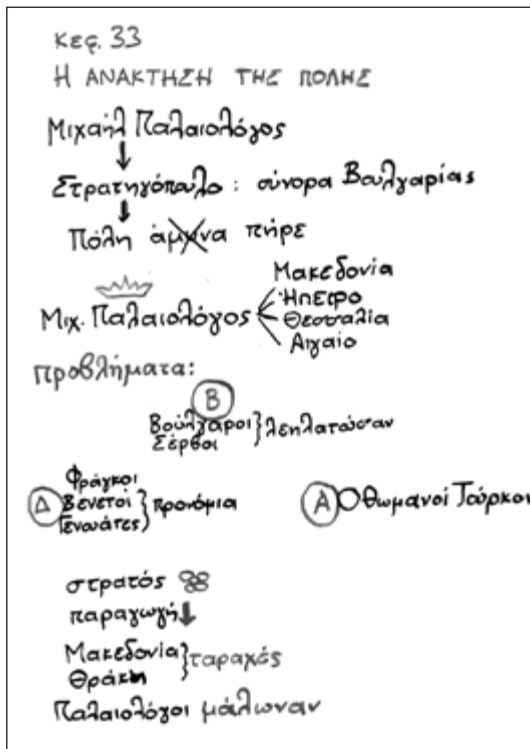 Κεφ. 33
Η ΑΝΑΚΤΗΣΗ ΤΗΣ ΠΟΛΗΣ
Μιχαήλ Παλαιολόγος
Στρατηγόπουλο: σύνορα Βουλγαρίας
Πόλη άμυνα πήρε
Μιχ. Παλαιολόγος
Μακεδονία
Ήπειρο
Θεσσαλία
Αιγαίο
προβλήματα:
Β
Βούλγαροι
Σέρβοι
λεηλατούσαν
Φράγκοι
Δ Βενετοί
Γενουάτες
προνόμια
Α Οθωμανοί Τούρκοι
στρατός
παραγωγή
Μακεδονία
Θράκη
ταραχές
Παλαιολόγοι μάλωναν